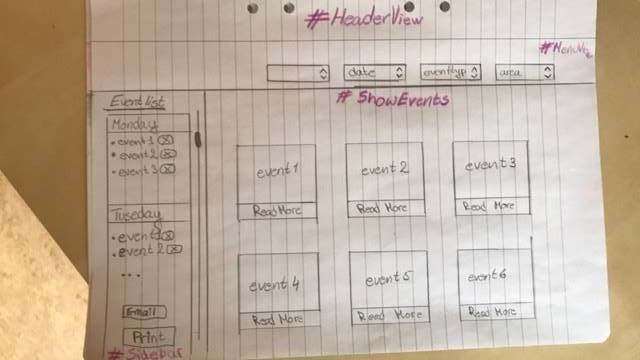 #HeaderView
#MenuVe
date
eventtyp
area
Event list
#ShowEvents
Monday
• event 1 x
• event 2 x
• event 3 x
Tuseday
• event 1 x
• event 2 x
...
E-mail
Print
#Sidebar
event 1
Read More
event 2
Read More
event 3
Read More
event 4
Read More
event 5
Read More
event 6
Read More